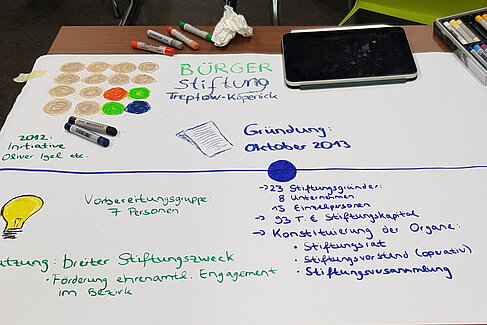 BÜRGER
Stiftung
Treptow-Köpenick
2012:
Initiative
Oliver Igel etc.
Gründung:
Oktober 2013
Vorbereitungsgruppe:
7 Personen
→ 23 Stiftungsgründer:
8 Unternehmen
15 Einzelpersonen
→ 93 T.€ Stiftungskapital
→ Konstituierung der Organe:
• Stiftungsrat
• Stiftungsvorstand (operativ)
• Stiftungsversammlung
utzung: breiter Stiftungszweck
• Förderung ehrenamtl. Engagement
im Bezirk